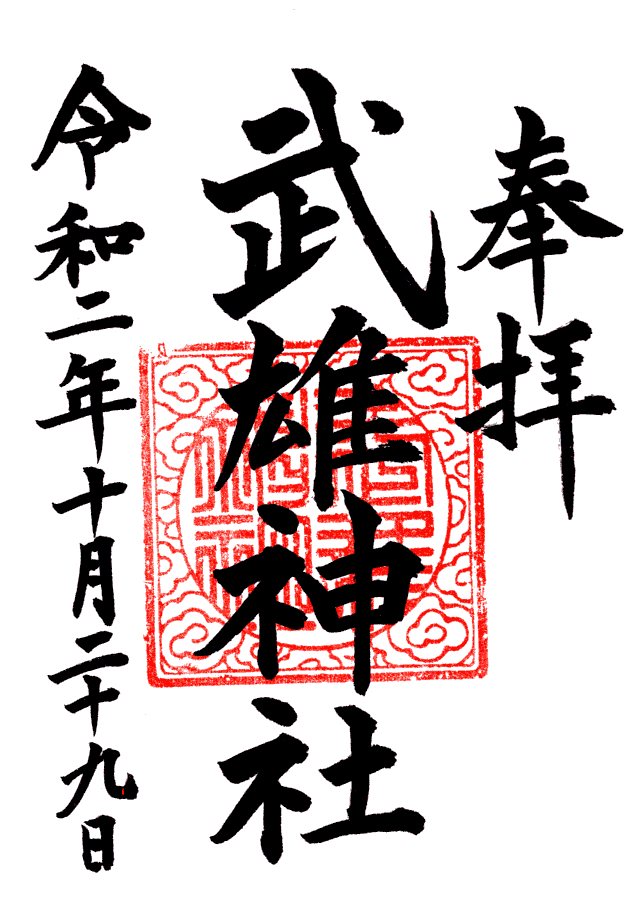 奉拝
武雄神社
令和二年十月二十九日